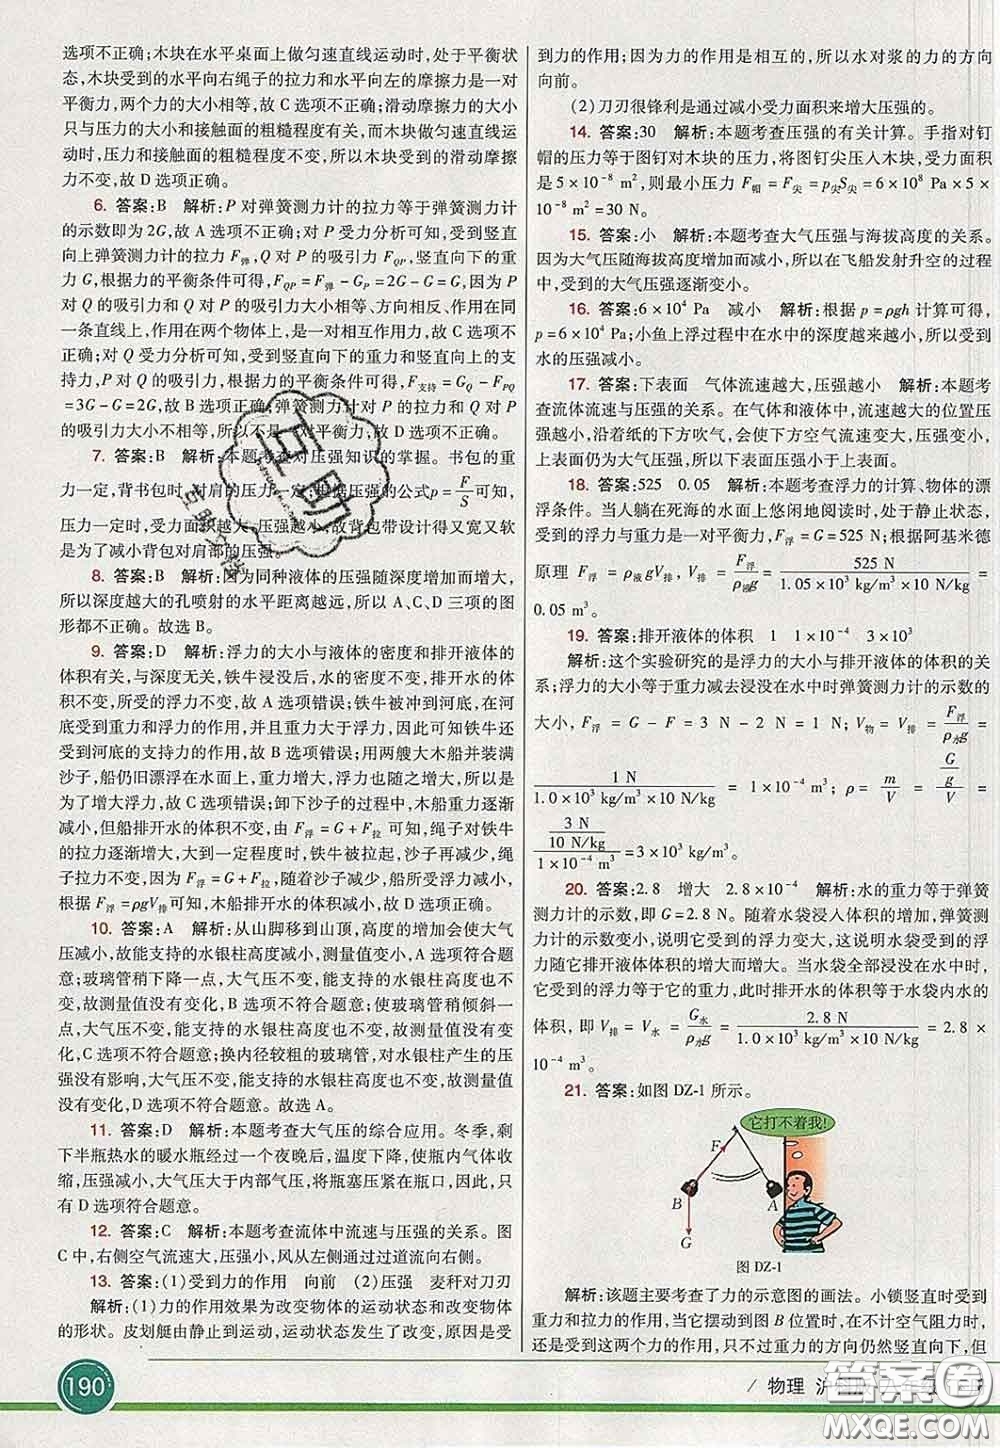 选项不正确;木块在水平桌面上做匀速直线运动时,处于平衡状
态,木块受到的水平向右绳子的拉力和水平向左的摩擦力是一对
平衡力,两个力的大小相等,故 C 选项不正确;滑动摩擦力的大小
只与压力的大小和接触面的粗糙程度有关,而木块做匀速直线运
动时,压力和接触面的粗糙程度不变,所以木块受到的滑动摩擦
力不变,故 D 选项正确。
6. 答案:B 解析:P 对弹簧测力计的拉力等于弹簧测力计
的示数即为 2G,故 A 选项不正确;对 P 受力分析可知,受到竖直
向上弹簧测力计的拉力 F弹,Q 对 P 的吸引力 FQP,竖直向下的重
力 G,根据力的平衡条件可得,FQP=F弹-GP=2G-G=G,因为
P 对 Q 的吸引力和 Q 对 P 的吸引力大小相等、方向相反、作用在同
一条直线上,作用在两个物体上,是一对相互作用力,故 C 选项不
正确;对 Q 受力分析可知,受到竖直向下的重力和竖直向上的支
持力,P 对 Q 的吸引力,根据力的平衡条件可得,F支持=GQ-FPQ
=3G-G=2G,故 B 选项正确;弹簧测力计对 P 的拉力和 P 对 Q 的
吸引力大小不相等,所以不是一对平衡力,故 D 选项不正确。
7. 答案:B 解析:本题考查对压强知识的掌握。书包的重
力一定,背书包时,对肩的压力一定;根据压强的公式 p=F/S 可知,
压力一定时,受力面积越大,压强越小,故背包带设计得又宽又软
是为了减小背包对肩部的压强。
8. 答案:B 解析:因为同种液体的压强随深度增加而增大,
所以深度越大的孔喷射的水平距离越远,所以 A、C、D 三项的图
形都不正确。故选 B。
9. 答案:D 解析:浮力的大小与液体的密度和排开液体的体
积有关,与深度无关,铁牛浸没后,水的密度不变,排开水的体
积不变,所受的浮力不变,故 A 选项错误;铁牛被冲到河底,在河
底受到重力和浮力的作用,并且重力大于浮力,因此可知铁牛还
受到河底的支持力的作用,故 B 选项错误;用两艘大木船并装满
沙子,船仍旧漂浮在水面上,重力增大,浮力也随之增大,所以是
改变的,故 C 选项错误;卸下沙子的过程中,木船重力逐渐
减小,但船排开水的体积不变,由 F浮=G+F拉 可知,绳子对铁牛
的拉力逐渐增大,大到一定程度时,铁牛被拉起,沙子再减少,绳
子拉力不变,因为 F浮=G+F拉,随着沙子减少,船受浮力减小,
根据 F浮=ρgV排 可知,木船排开水的体积减小,故 D 选项正确。
10. 答案:A 解析:从山脚移到山顶,高度的增加会使大气
压减小,故能支持的水银柱高度减小,测量值变小,A 选项符合题
意;玻璃管稍下降一点,大气压不变,能支持的水银柱高度也不
变,故测量值没有变化,B 选项不符合题意;使玻璃管稍倾斜一
点,大气压不变,能支持的水银柱高度也不变,故测量值没有变
化,C 选项不符合题意;换内径较粗的玻璃管,对水银柱产生的压
强没有影响,大气压不变,能支持的水银柱高度不变,故测量值
没有变化,D 选项不符合题意。故选 A。
11. 答案:D 解析:本题考查大气压的综合应用。冬季,剩
下半瓶热水的暖水瓶经过一个夜晚后,温度下降,瓶内气体遇冷
收缩,压强减小,大气压大于内部气压,将瓶塞压紧在瓶口,因此,只
有 D 选项符合题意。
12. 答案:C 解析:本题考查流体中流速与压强的关系。图
C 中,右侧空气流速大,压强小,风从左侧通过过道流向右侧。
13. 答案:(1)受到力的作用 向前 (2)压强 麦秆对刀刃
解析:(1)力的作用效果为改变物体的运动状态和改变物体
的形状。皮划艇由静止到运动,运动状态发生了改变,原因是受
到力的作用;因为力的作用是相互的,所以水对浆的力的方向
向前。
(2)刀刃很锋利是通过减小受力面积来增大压强的。
14. 答案:30 解析:本题考查压强的有关计算。手指对钉
帽的压力等于图钉对木块的压力,将图钉尖压入木块,受力面积
是 5×10⁻⁸ m²,则最小压力 F帽=F尖=p尖S尖=6×10⁸ Pa×5×
10⁻⁸ m²=30 N。
15. 答案:小 解析:本题考查大气压强与海拔高度的关系。
因为大气压随海拔高度增加而减小,所以在飞船发射升空的过程
中,受到的大气压强逐渐变小。
16. 答案:6×10⁴ Pa 减小 解析:根据 p=ρgh 计算可得,
p=6×10⁴ Pa;小鱼上浮过程中在水中的深度越来越小,所以受到
水的压强减小。
17. 答案:下表面 气体流速越大,压强越小 解析:本题考
查流体流速与压强的关系。在气体和液体中,流速越大的位置压
强越小,沿着纸的下方吹气,会使下方空气流速变大,压强变小,
上表面仍为大气压强,所以下表面压强小于上表面压强。
18. 答案:525 0.05 解析:本题考查浮力的计算、物体的漂
浮条件。当人躺在死海的水面上悠闲地阅读时,处于静止状态,
受到的浮力与重力是一对平衡力,F浮=G=525 N;根据阿基米德
原理 F浮=ρ液gV排,V排=F浮/ρ液g=525 N/1.05×10³ kg/m³×10 N/kg=
0.05 m³。
19. 答案:排开液体的体积 1 1×10⁻⁴ 3×10³
解析:这个实验研究的是浮力的大小与排开液体的体积的关
系;浮力的大小等于重力减去浸没在水中时弹簧测力计的示数的
大小,F浮=G-F=3 N-2 N=1 N;V物=V排=F浮/ρ水g=
1 N/1.0×10³ kg/m³×10 N/kg=1×10⁻⁴ m³;ρ=m/V=(G/g)/V=
(3 N/10 N/kg)/1×10⁻⁴ m³=3×10³ kg/m³。
20. 答案:2.8 增大 2.8×10⁻⁴ 解析:水的重力等于弹簧
测力计的示数,即 G=2.8 N。随着水袋浸入体积的增加,弹簧测
力计的示数变小,说明它受到的浮力变大,说明水袋受到的浮力
随它排开液体体积的增大而增大。当水袋全部浸没在水中时,
它受到的浮力等于它的重力,此时排开水的体积等于水袋内水的
体积,即 V排=V水=G水/ρ水g=2.8 N/1.0×10³ kg/m³×10 N/kg=2.8
×10⁻⁴ m³。
21. 答案:如图 DZ-1 所示。
它打不着我!
F
B
A
G
图 DZ-1
解析:该题主要考查了力的示意图的画法。小锁竖直时受到
重力和拉力的作用,当它摆动到图 B 位置时,在不计空气阻力时,
还是受到两个力的作用,只不过重力的方向仍然竖直向下,但
190
物理 沪
答案卷
MXQE.COM
互助